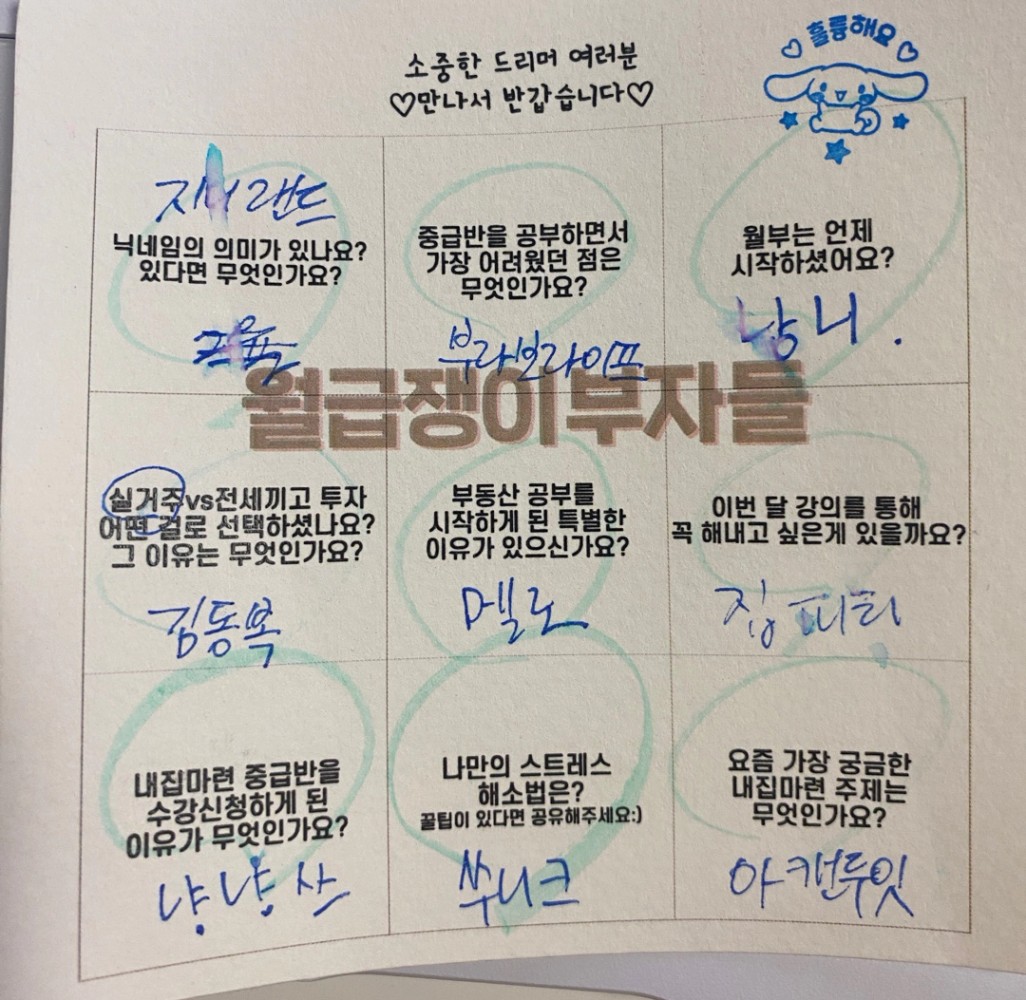 훌륭해요
소중한 드리머 여러분
♡만나서 반갑습니다♡
지니랜드
닉네임의 의미가 있나요?
있다면 무엇인가요?
중급반을 공부하면서
가장 어려웠던 점은
무엇인가요?
부라보라이프
월부는 언제
시작하셨어요?
낭니.
월급쟁이부자들
실거주vs전세끼고 투자
어떤 걸로 선택하셨나요?
그 이유는 무엇인가요?
김동복
부동산 공부를
시작하게 된 특별한
이유가 있으신가요?
멜로
이번 달 강의를 통해
꼭 해내고 싶은게 있을까요?
집피티
내집마련 중급반을
수강신청하게 된
이유가 무엇인가요?
냥냥샤
나만의 스트레스
해소법은?
꿀팁이 있다면 공유해주세요:)
쑤니크
요즘 가장 궁금한
내집마련 주제는
무엇인가요?
아캔두잇